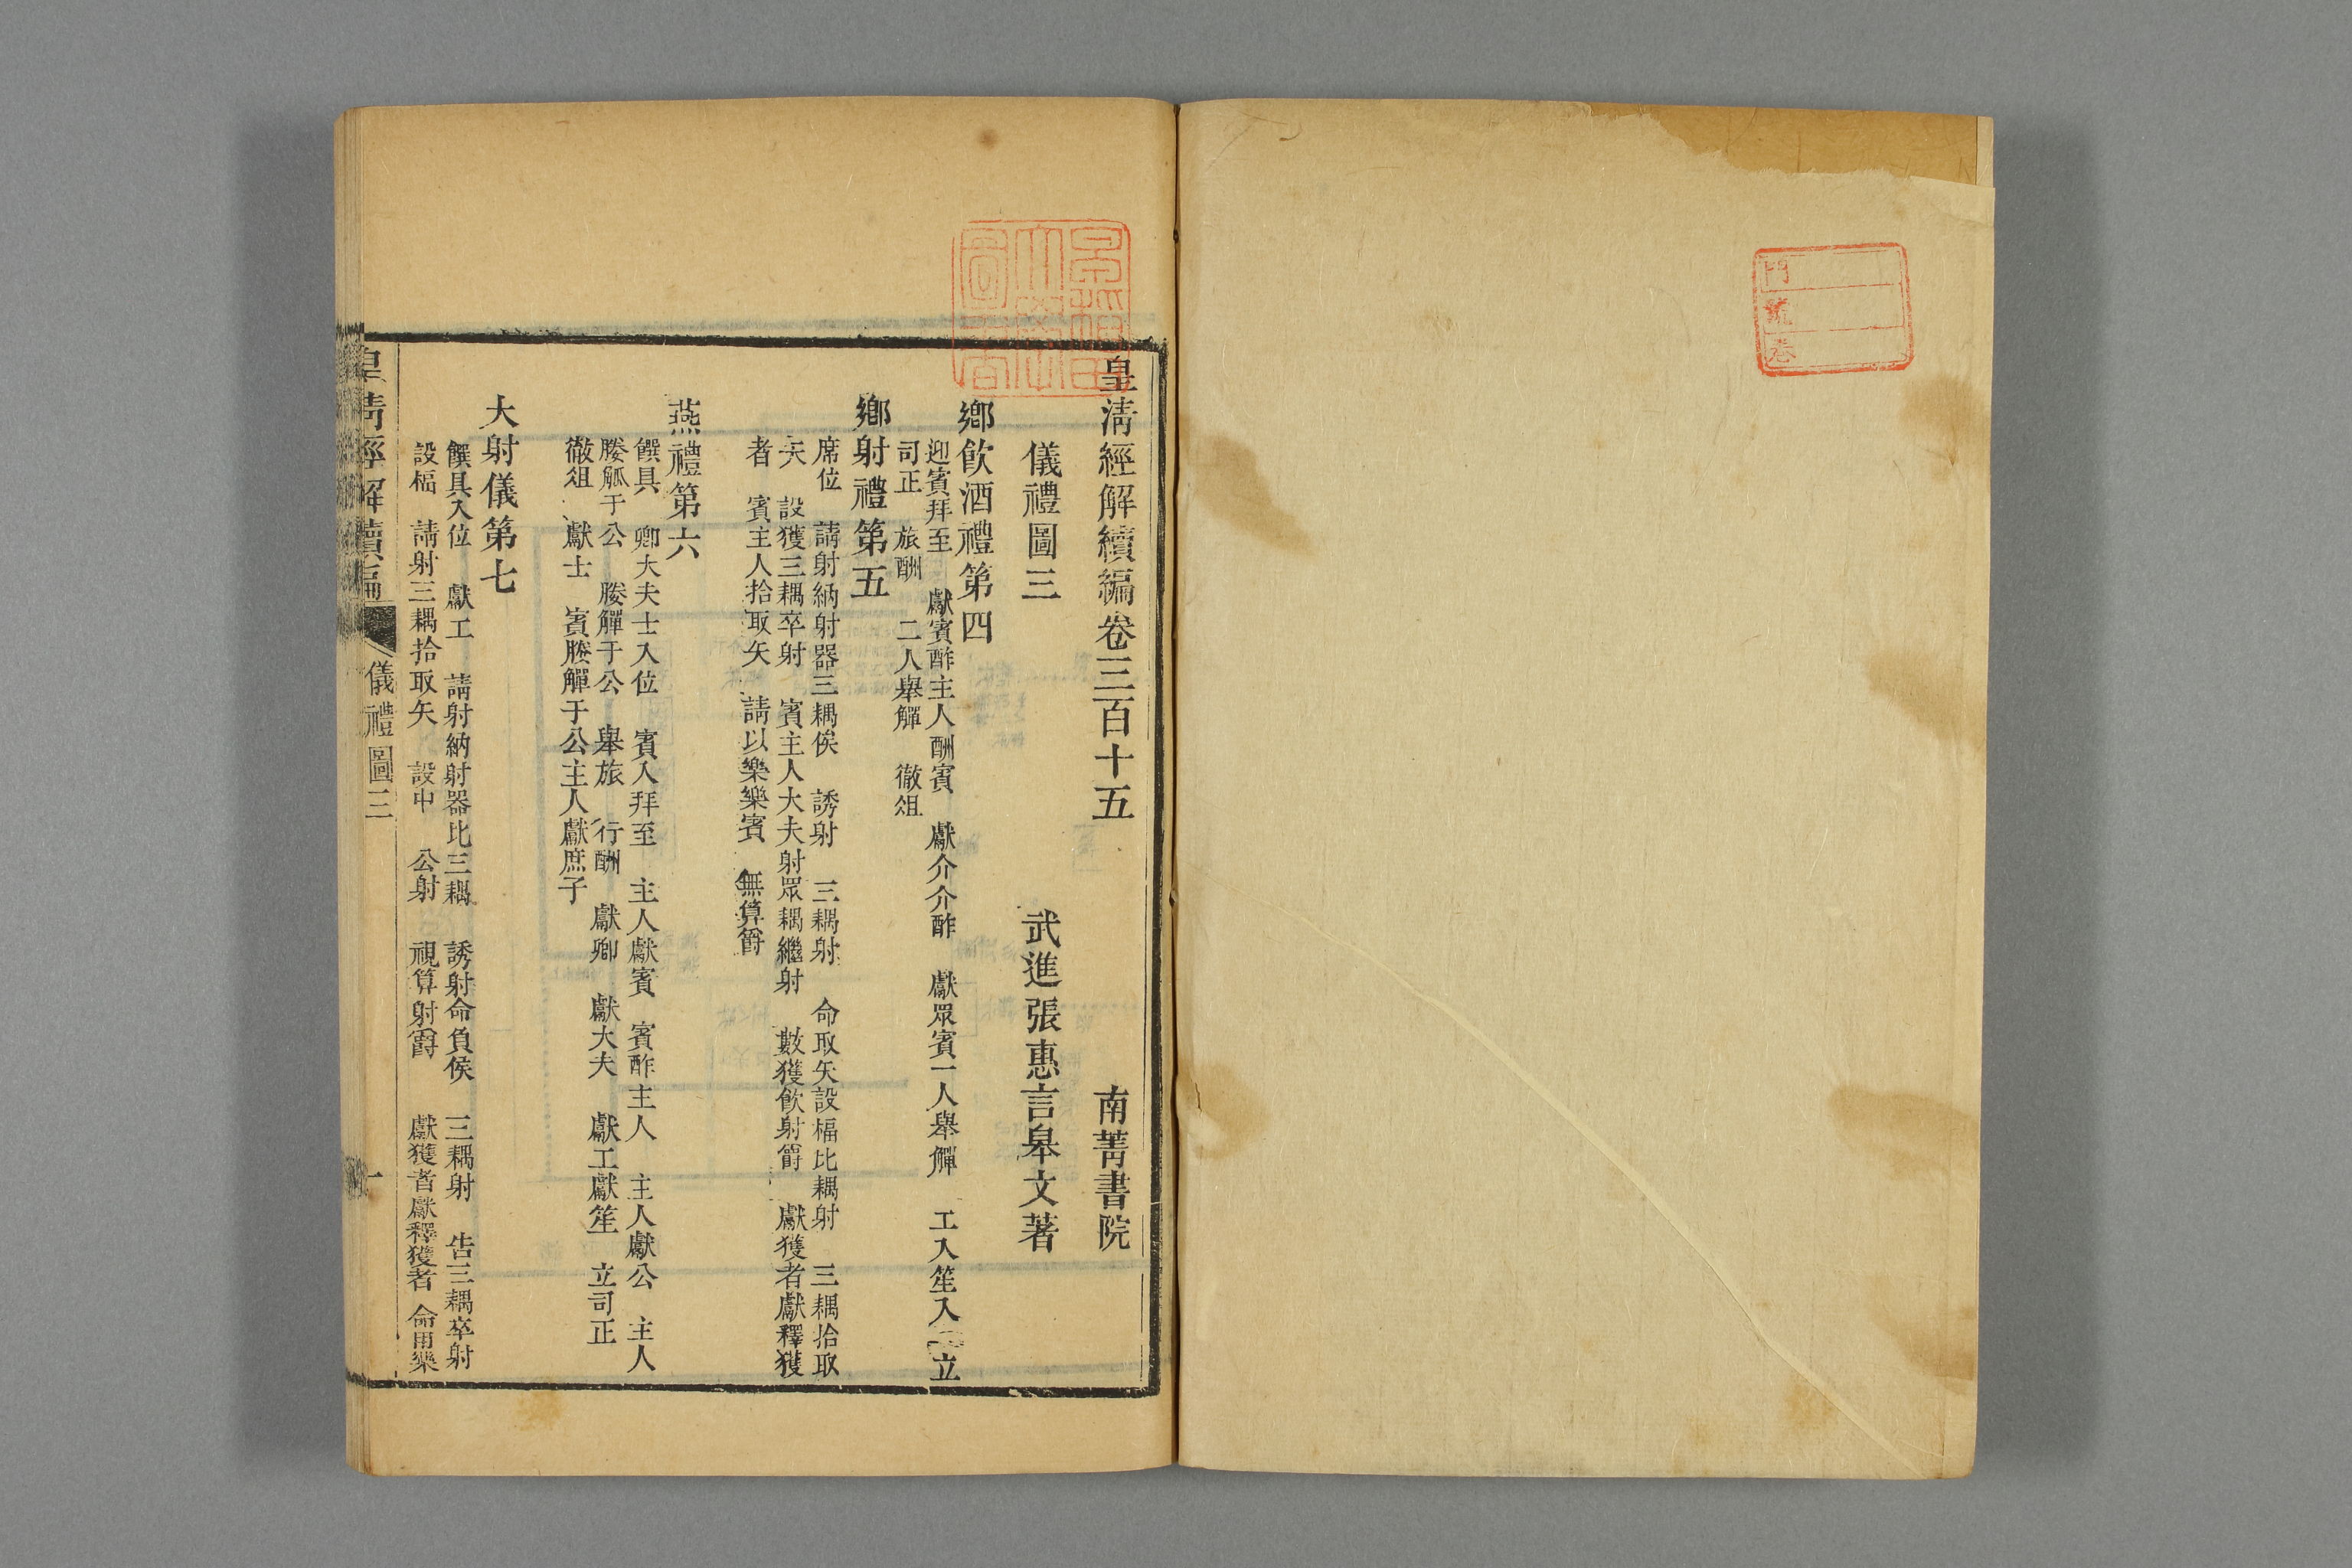 門
號
卷
皇清經解續編卷三百十五　南菁書院
儀禮圖三　武進張惠言皋文著
鄉飮酒禮第四
迎賓拜至　獻賓酢主人酬賓　獻介介酢　獻眾賓一人舉觶　工入笙入　立
司正　旅酬　二人舉觶　徹俎
鄉射禮第五
席位　請射納射器三耦俟　誘射　三耦射　命取矢設楅比耦射　三耦拾取
矢　設獲三耦卒射　賓主人大夫射眾耦繼射　數獲飮射爵　獻獲者獻釋獲
者　賓主人拾取矢　請以樂樂賓　無算爵
燕禮第六
饌具　卿大夫士入位　賓入拜至　主人獻賓　賓酢主人　主人獻公　主人
媵觚于公　媵觶于公　舉旅　行酬　獻卿　獻大夫　獻工獻笙　立司正
徹俎　獻士　賓媵觶于公主人獻庶子
大射儀第七
饌具入位　獻工　請射納射器比三耦　誘射命負侯　三耦射　告三耦卒射
設楅　請射三耦拾取矢　設中　公射　視算射爵　獻獲者獻釋獲者　命用樂
皇清經解續編　儀禮圖三　一